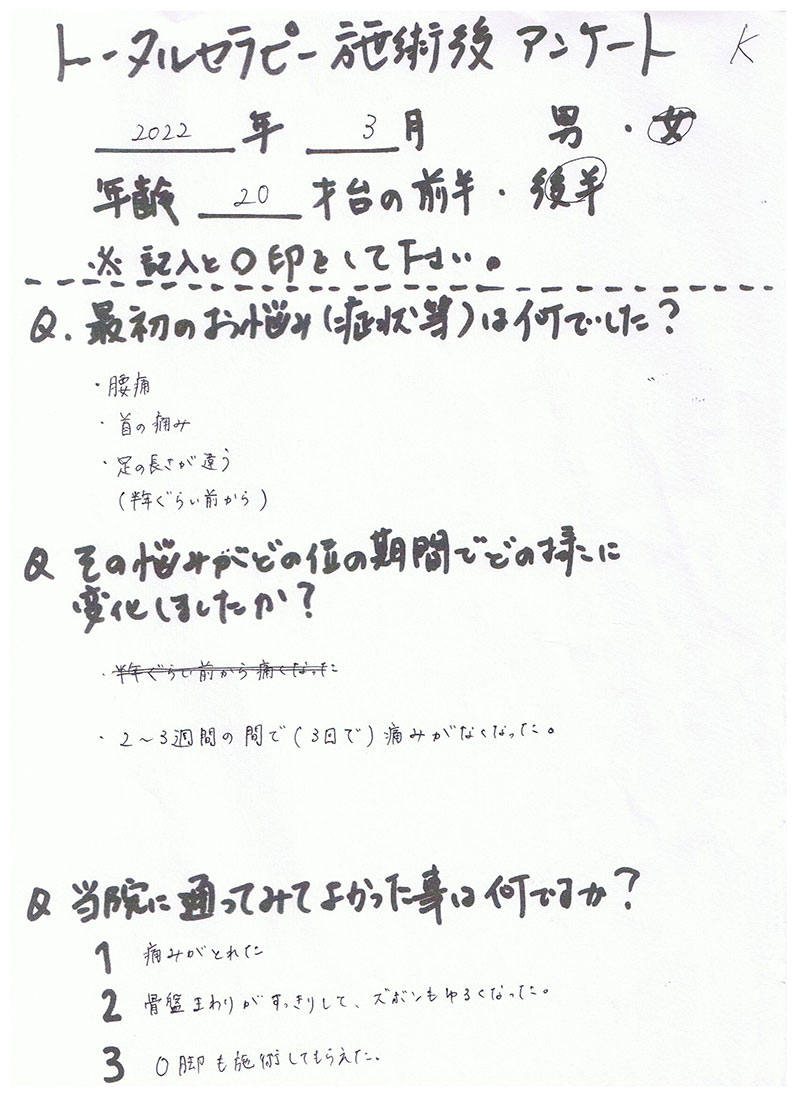 トータルセラピー施術後 アンケート K
2022 年 3 月 男・女
年齢 20 才台の前半・後半
※ 記入と〇印をして下さい。
Q. 最初のお悩み(症状等)は何でした?
・腰痛
・首の痛み
・足の長さが違う
(半年ぐらい前から)
Q その悩みがどの位の期間でどの様に
変化しましたか?
・半年ぐらい前から痛くなった
・2〜3週間の間で(3回で)痛みがなくなった。
Q 当院に通ってみてよかった事は何ですか?
1 痛みがとれた
2 骨盤まわりがすっきりして、ズボンもゆるくなった。
3 O脚も施術してもらえた。